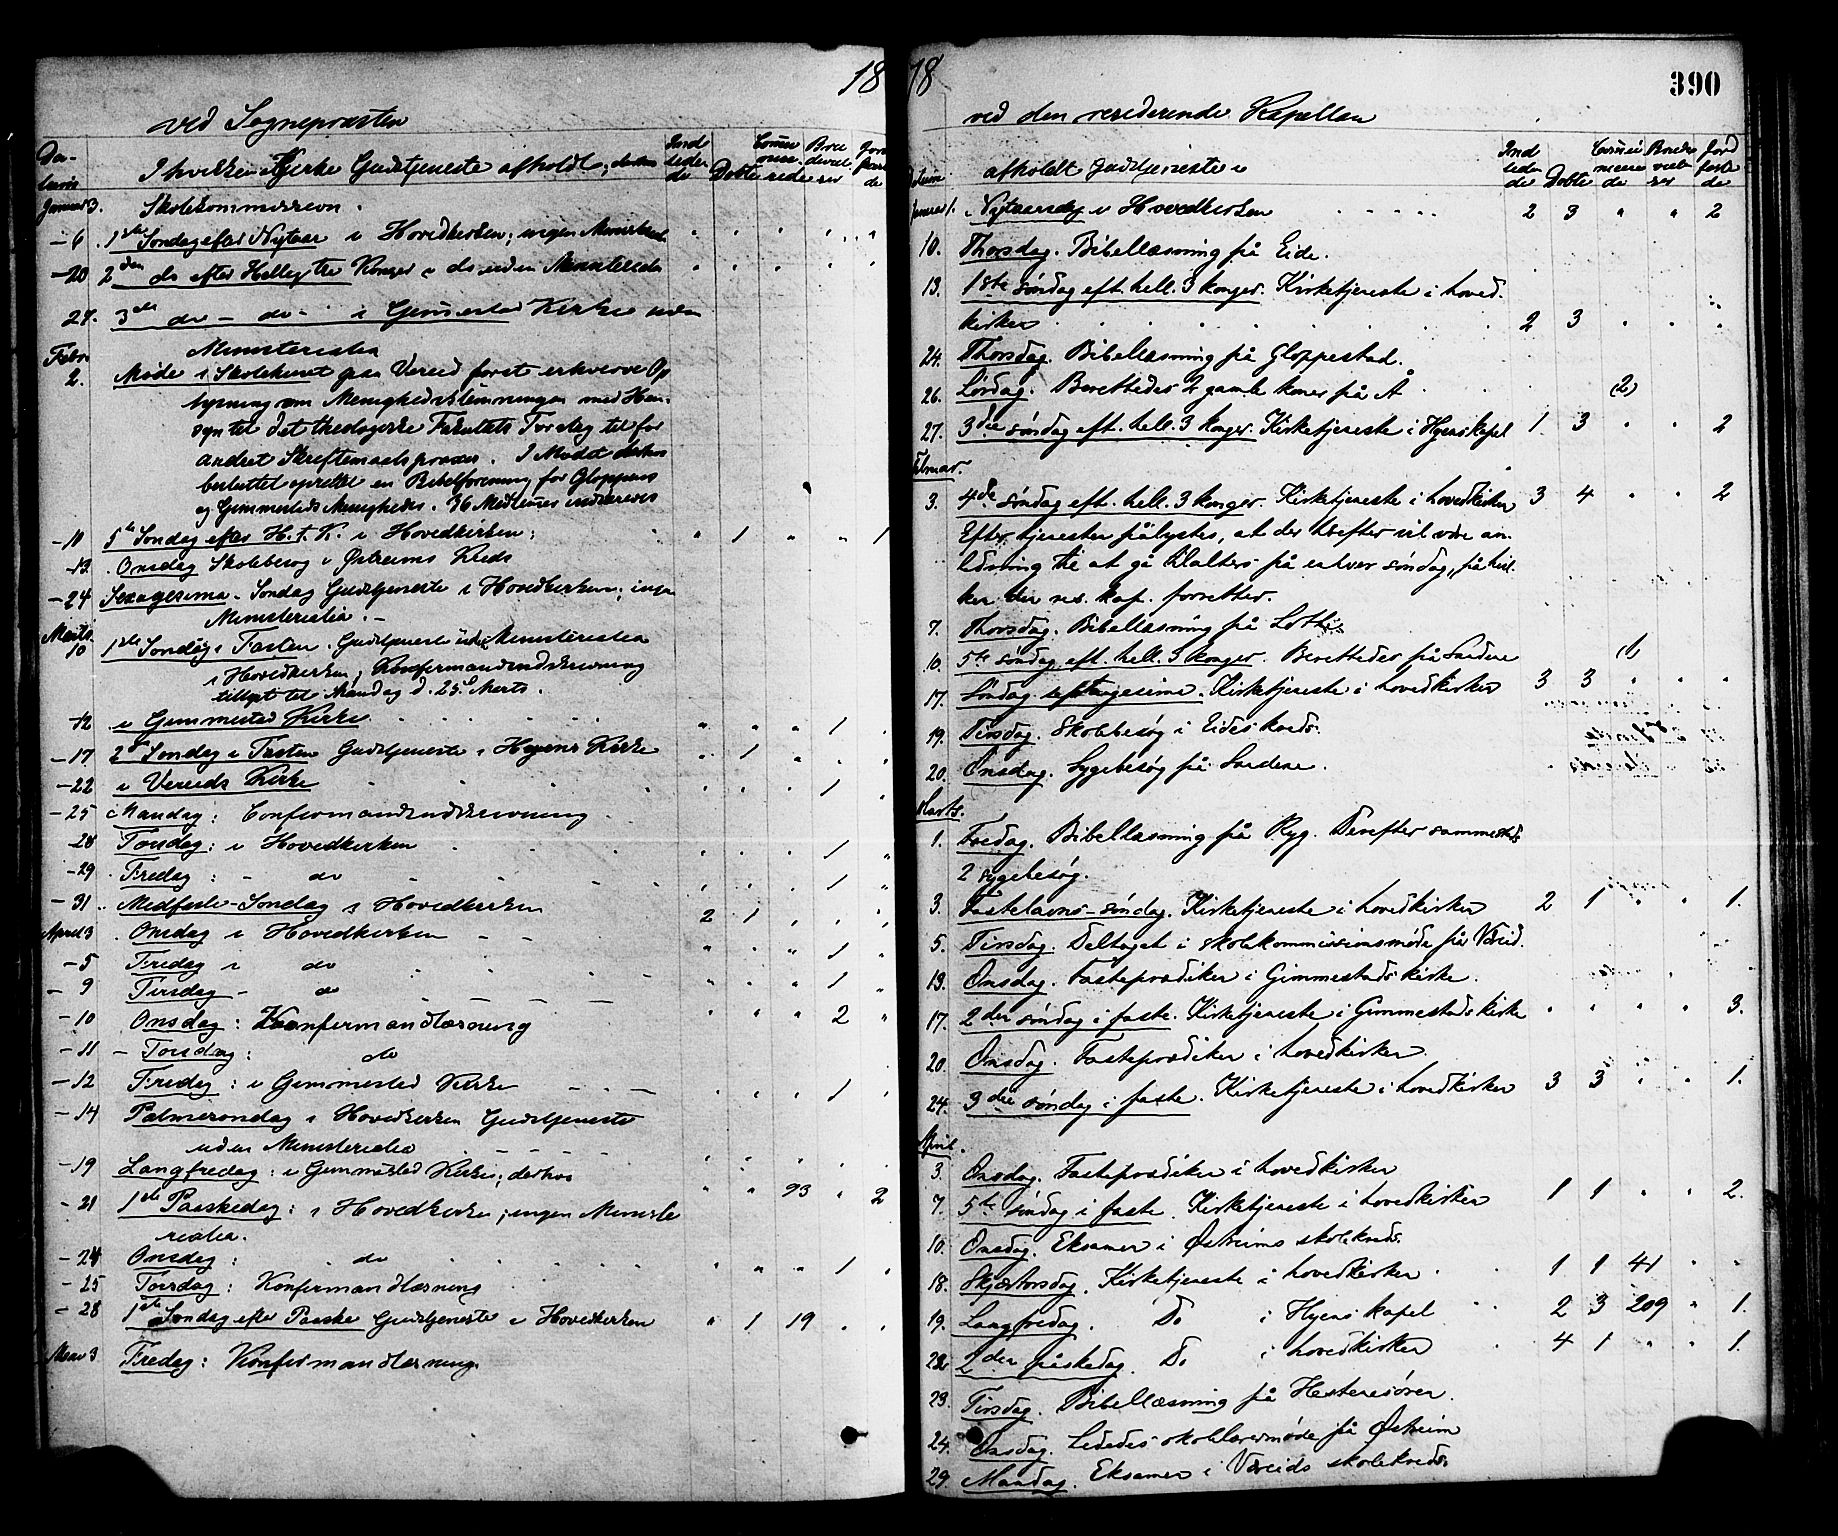 18
ved Sognepræsten
Da-
tum
I hvilken Kirke Gudstjeneste afholdt;
Ind
leder
de
Døbte
Commu
nice-
rede
Bru
deviel-
ser
Januar 3. Skolekommission.
- 6. 1ste Søndag efter Nytaar i Hovedkirken; ingen Ministerial.
- 20 2den do efter Hellig tre Konger i do uden Ministerialia
27. 3die do - do - i Gimmestad Kirke uden
Ministerialia
Febr.
2. Møde i Skolehuset paa Vereid forat erhverve Op
lysning om Menighedsstemningen med Hen-
syn til det theologiske Fakultets Forslag til for
andret Skriftemaalspraxis. I Mødet derhos
besluttet oprettet en Bibelforening for Gloppens
og Gimmestads Menigheder. 36 Medlemer indskreves
- 10 5te Søndag efter H. t. K. i Hovedkirken; " 1 " " 1
- 13. Onsdag Skolebesøg i Østreims Kreds
- 24 Sexagesima - Søndag Gudstjeneste i Hovedkirken; ingen
Ministerialia. -
Marts
10 1ste Søndag i Fasten. Gudstjeneste uden Ministerialia
i Hovedkirken; Konfirmandindskrivning
tillyst til Mandag d. 25de Marts.
- 12 i Gimmestad Kirke " " " 1 "
- 17 2den Søndag i Fasten Gudstjeneste i Hyens Kirke " 1 " " "
- 22 i Vereids Kirke " " " 1 "
- 25 Mandag: Confirmandindskrivning.
28 Torsdag: i Hovedkirken " " " 1 "
- 29 Fredag: - do " " " 1 "
- 31 Midfaste-Søndag i Hovedkirken 2 1 " " "
April 3 Onsdag i Hovedkirken - - " " " 1 "
- 5 Fredag i do " " " 1 "
- 9 Tirsdag - do " " " 2 "
- 10 Onsdag: Konfirmandlæsning
- 11 - Torsdag: do
- 12 Fredag: i Gimmestad Kirke " " " 1 "
- 14 Palmesøndag i Hovedkirken Gudstjeneste
uden Ministerialia
- 19 Langfredag: i Gimmestad Kirke; derhos " " 93 " 2
- 21 1ste Paaskedag: i Hovedkirken; ingen Ministe
rialia.
- 24 Onsdag: do " " " 1 "
- 25 Torsdag: Konfirmandlæsning
- 28 1ste Søndag efter Paaske Gudstjeneste i Hovedkirken " 1 19 " "
Mai 3 Fredag: Konfirmandlæsning
78
390
ved den residerende Kapellan
Datum
afholdt gudstjeneste i
Ind
leder
de
Døbte
Commu
nicere
de
Brude
viel
ser
Jord
fæste
de
Januar 1. Nytaarsdag i Hovedkirken 2 3 " " 2
10. Thorsdag. Bibellæsning på Eide.
13. 1ste søndag eft. hell. 3 konger. Kirketjeneste i hoved.
kirken 2 3 " " "
24. Thorsdag. Bibellæsning på Gloppestad.
26. Lørdag. Berettedes 2 gamle koner på Å (2)
27. 3die søndag eft. hell. 3 konger. Kirketjeneste i Hyens kapel 1 3 " " 2
Februar.
3. 4de søndag eft. hell. 3 konger. Kirketjeneste i hovedkirken 3 4 " " 2
Efter tjenesten pålystes, at der herefter vil være an-
ledning til at gå til alters på enhver søndag, på hvil-
ken den res. kap. forretter.
7. Thorsdag. Bibellæsning på Lothe
10. 5te søndag eft. hell. 3 konger. Berettedes på Sandene (1)
17. Søndag septuagesima. Kirketjeneste i hovedkirken 3 3 " " "
19. Tirsdag. Skolebesøg i Eides kreds.
20. Onsdag. Sygebesøg på Sandene.
Marts.
1. Fredag. Bibellæsning på Ryg. Derefter sammesteds
2 sygebesøg.
3. Fastelavns-søndag. Kirketjeneste i hovedkirken 2 1 " " 1.
5. Tirsdag. Deltaget i skolekommissionsmøde på Vereid.
13. Onsdag. Fasteprædiken i Gimmestads kirke.
17. 2den søndag i faste. Kirketjeneste i Gimmestads kirke " " " " 3.
20. Onsdag. Fasteprædiken i hovedkirken.
24. 3die søndag i faste. Kirketjeneste i hovedkirken 3 3 " " 1.
April.
3. Onsdag. Fasteprædiken i hovedkirken
7. 5te søndag i faste. Kirketjeneste i hovedkirken 1 1 " " 2.
10. Onsdag. Eksamen i Østreims skolekreds.
18. Skjærthorsdag. Kirketjeneste i hovedkirken 1 1 41 " "
19. Langfredag. Do i Hyens kapel 2 3 209 " 1.
22. 2den påskedag. Do i hovedkirken 4 1 " " 1.
23. Tirsdag. Bibellæsning på Hestenesøren.
24. Onsdag. Lededes skolelærermøde på Østreim
29. Mandag. Eksamen i Vereids skolekreds.